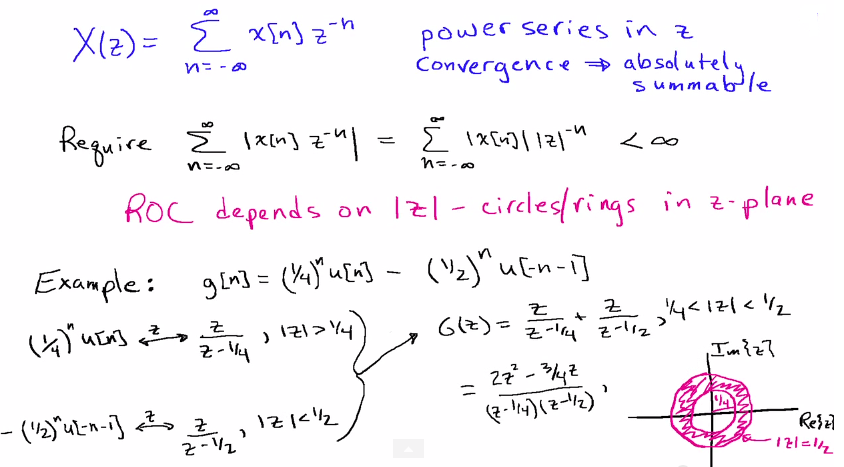 X(z) = ∞ Σ n=-∞ x[n] z^-n power series in z
Convergence ⇒ absolutely summable
Require ∞ Σ n=-∞ |x[n] z^-n| = ∞ Σ n=-∞ |x[n]| |z|^-n < ∞
ROC depends on |z| - circles/rings in z-plane
Example: g[n] = (1/4)^n u[n] - (1/2)^n u[-n-1]
(1/4)^n u[n] ←z→ z/(z-1/4), |z|>1/4
G(z) = z/(z-1/4) + z/(z-1/2), 1/4<|z|<1/2
= (2z^2 - 3/4z)/((z-1/4)(z-1/2)),
-(1/2)^n u[-n-1] ←z→ z/(z-1/2), |z|<1/2
Im{z}
1/4
Re{z}
|z|=1/2